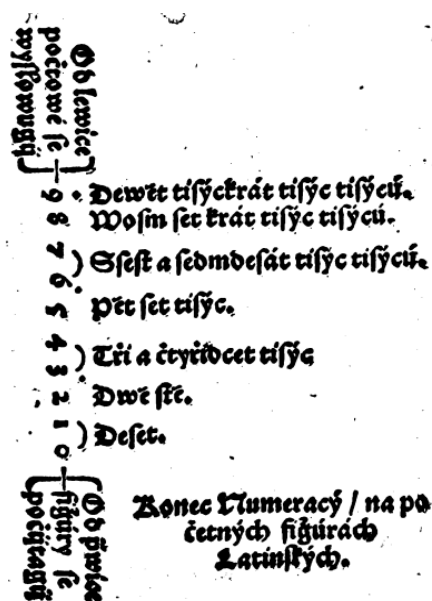 Od lewice
počtowé se
wyslowugij
9 . Dewět tisýckrát tisýc tisýců.
8 Wosm set krát tisýc tisýců.
7 ) Ssest a sedmdesát tisýc tisýců.
6
5 Pět set tisýc.
4 ) Tři a čtyřidcet tisýc
3
2 Dwě stě.
1 ) Deset.
0
Od prwice
figúry se
počijtagij
Konec Numeracý / na po
četných figúrách
Latinských.